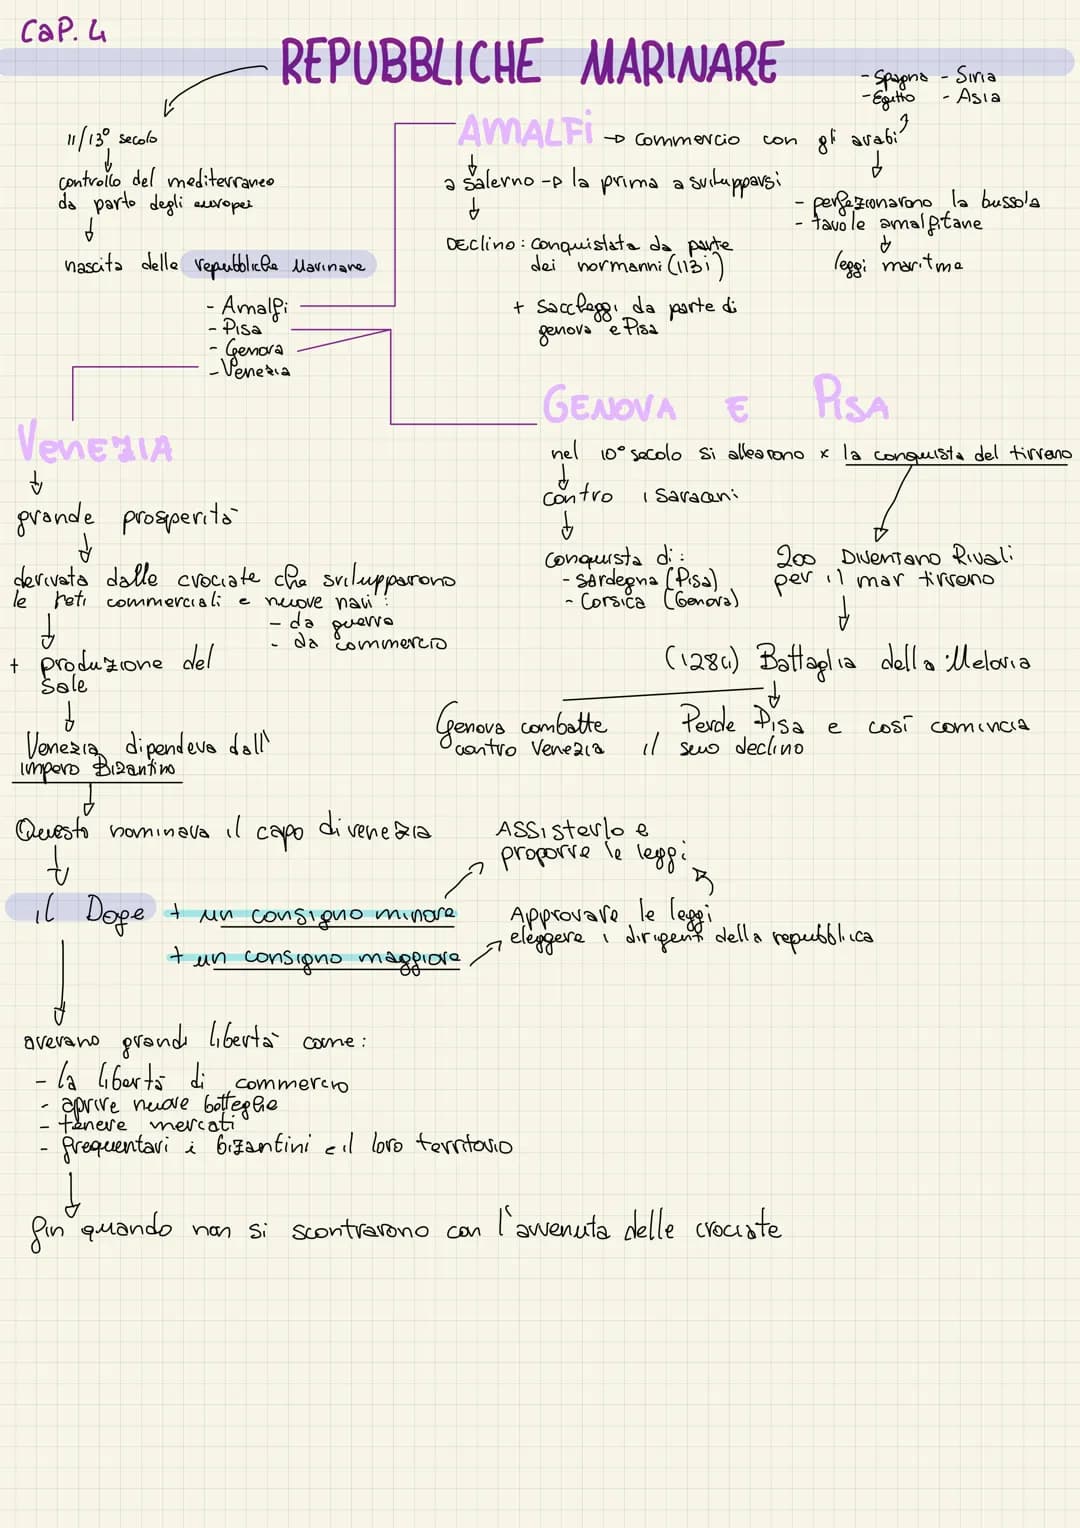 CaP. 4
REPUBBLICHE MARINARE
11/13° secolo
controllo del mediterraneo
da parte degli europei
nascita delle repubbliche Marinare
- Amalfi
- Pisa
- Genova
- Venezia
AMALFI → commercio con gli arabi
- Spagna - Siria
- Egitto - Asia
a Salerno → la prima a svilupparsi
- perfezionarono la bussola
- tavole amalfitane
leggi maritime
DEclino: conquistata da parte
dei normanni (1131)
+ saccheggi da parte di
genova e Pisa
GENOVA E PISA
nel 10° secolo si allearono x la conquista del tirreno
contro i Saraceni
conquista di:
- Sardegna (Pisa)
- Corsica (Genova)
200 Diventano Rivali
per il mar tirreno
(1284) Battaglia della Meloria
Genova combatte
contro Venezia
Perde Pisa e così comincia
il suo declino
VENEZIA
grande prosperità
derivata dalle crociate che svilupparono
le reti commerciali e nuove navi:
- da guerra
- da commercio
+ produzione del
Sale
Venezia dipendeva dall'
impero Bizantino
Questo nominava il capo di venezia
il Doge + un consigno minore
+ un consigno maggiore
ASSisterlo e
proporre le leggi
Approvare le leggi
eleggere i dirigenti della repubblica
avevano grandi libertà come:
- la libertà di commercio
- aprire nuove botteghe
- tenere mercati
- frequentari i bizantini e il loro territorio
fin quando non si scontrarono con l'avvenuta delle crociate